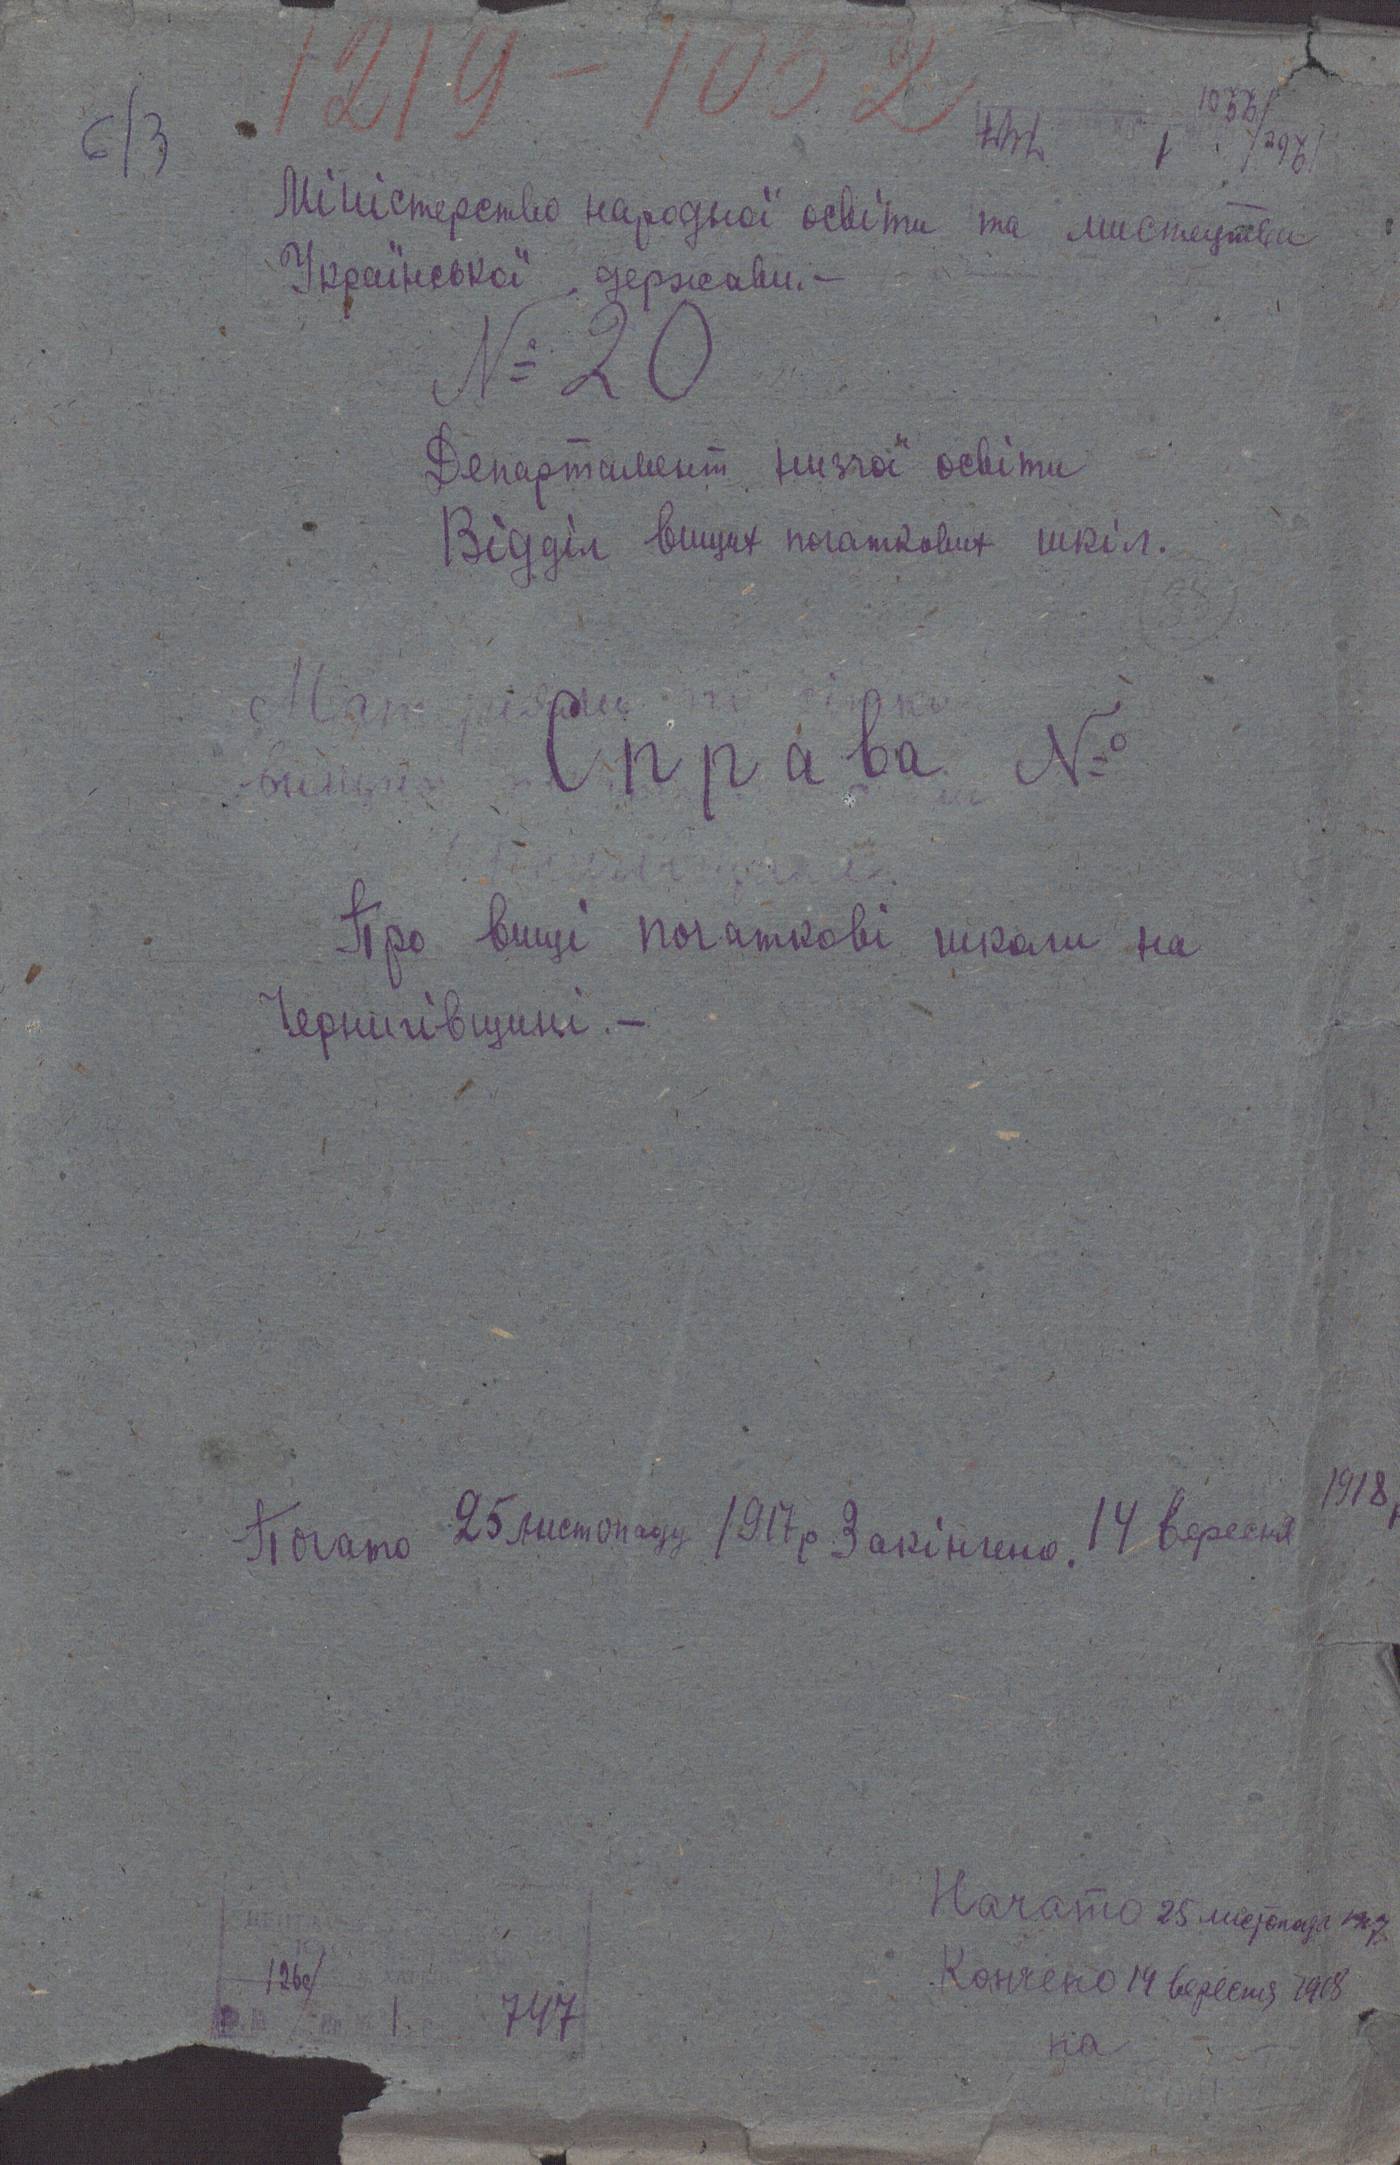 1219 - 1052
6/3
747 1
Міністерство народної освіти та мистецтва
Української держави.—
№ 20
Департамент низчої освіти
Відділ вищих початкових шкіл.
Справа №
Про вищі початкові школи на
Чернигівщині.—
Почато 25 листопаду 1917 р Закінчено. 14 вересня 1918
Начато 25 листопада 1917
Кончено 14 вересня 1918
на
1 747